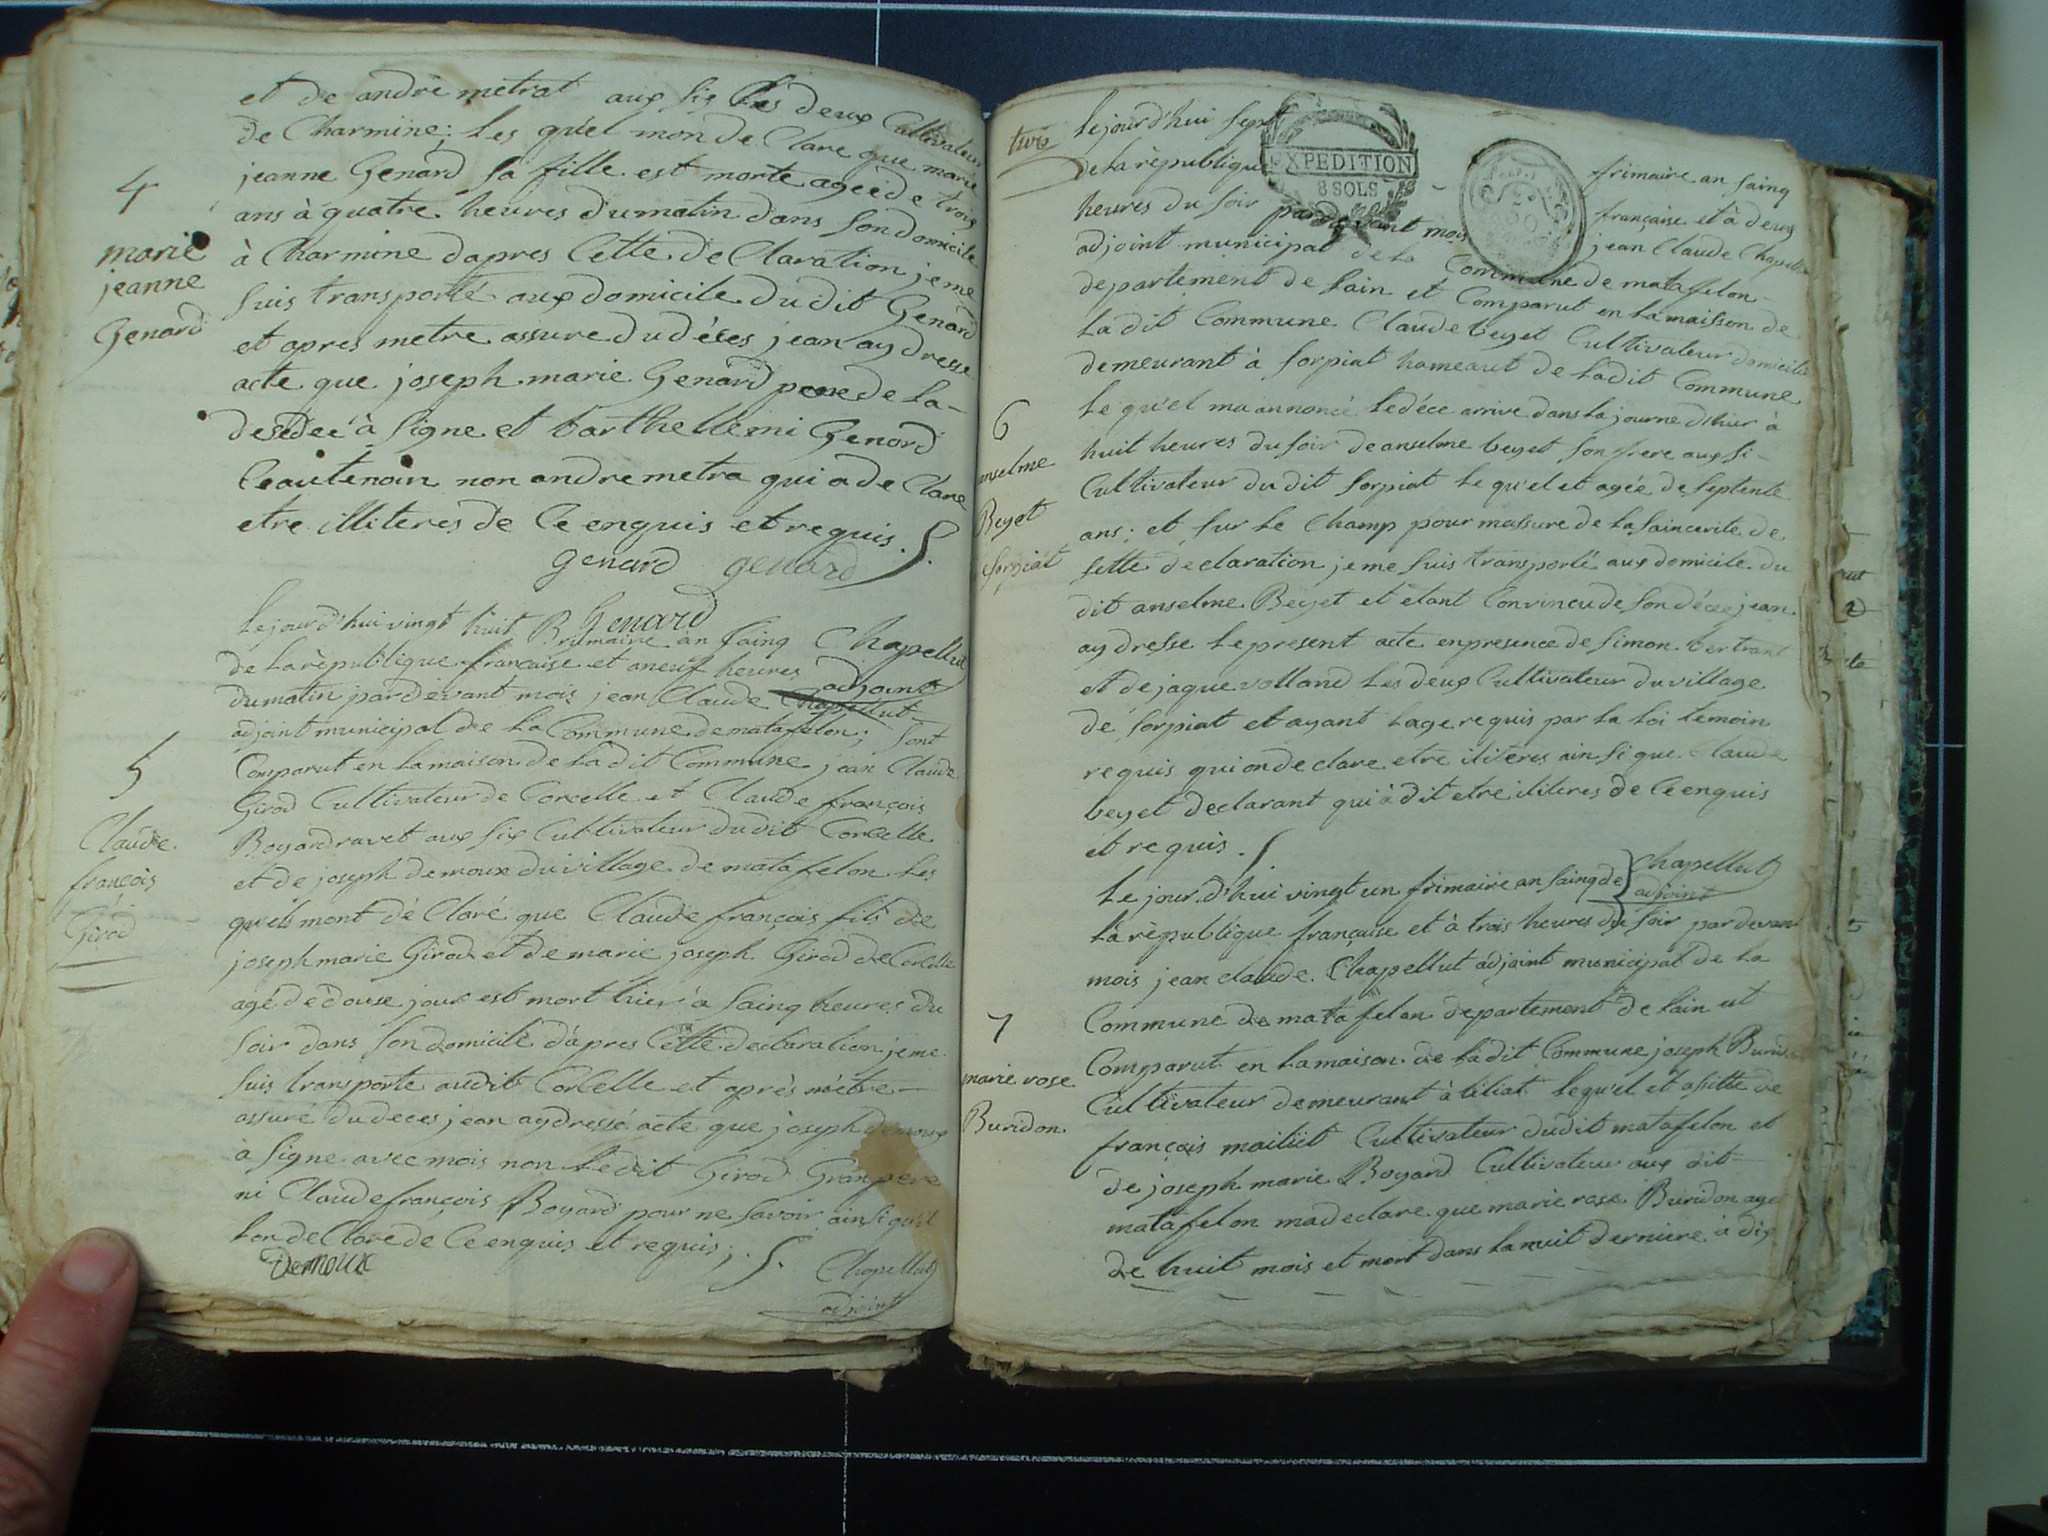 et de andré metrat aux six les deux Cultivateur
de Charmine; les quel mon de Clare que marie
jeanne Genard sa fille est morte ageé de trois
ans à quatre heures du matin dans son domicile
à Charmine dapres Cette de Claration je me
suis transporté aux domicile du dit Genard
et apres metre assure du déces jean ay dresse
acte que joseph marie Genard pere de la
desedeé à Signe et barthellemi Genard
non andre metra qui a de Clare
etre illiteres de Ce enquis et requis.
4
marie
jeanne
Genard
genard genard
Genard
Chapellut
adjoint
le jourd'hui vingt huit Brumaire an sainq
de la rèpublique francaise et a neuf heures
du matin pardevant mois jean Claude Chapellut
adjoint municipal de la Commune de matafelon; sont
Comparut en la maison de ladit Commune jean Claude
Girod Cultivateur de Corcelle et Claude françois
Boyard ravet aux six Cultivateur dudit Corcelle
et de joseph demoux du village de matafelon les
quels mont dé Claré que Claude françois fils de
joseph marie Girod et de marie joseph Girod de Corcelle
agé de douse jour est mort hier à sainq heures du
soir dans son domicile d'apres Cette declaration je me
suis transporte audit Corcelle et après mêtre
assuré du deces jean ay dressé acte que joseph demoux
à signe avec mois non ledit Girod Granpere
ni Claude françois Boyard pour ne savoir ainsi quil
lon de Clare de Ce enquis et requis;
5
Claude
françois
Girod
Demoux
Chapellut
adjoint
EXPEDITION
8 SOLS
le jourd'hui sept frimaire an sainq
de la rèpublique française et à deux
heures du soir pardevant mois jean Claude Chapellut
adjoint municipal de la Commune de matafelon
departement de lain et Comparut en la maison de
la dit Commune Claude beyet Cultivateur domicile
demeurant à sorpiat hameaut de ladit Commune
le qu'el ma annoncé le déce arrive dans la journe d'hier à
huit heures du soir de anselme beyet son frere aux si
Cultivateur du dit sorpiat le qu'el et agée de septente
ans; et sur le Champ pour massure de la saincerite de
sette declaration je me suis transporté aux domicile du
dit anselme Beyet et etant Convincu de son déce jean
ay dresse le present acte en presence de simon bertrant
et de jaque volland les deux Cultivateur du village
de sorpiat et ayant lage requis par la loi temoin
requis qui on de clare etre iliteres ain si que Claude
beyet declarant qui à dit etre iliteres de Ce enquis
et requis.
6
anselme
Beyet
sorpiat
Chapellut
adjoint
le jour d'hui vingt un frimaire an sainq de
la rèpublique française et à trois heures du soir par devant
mois jean claude Chapellut adjoint municipal de la
Commune de matafelon departement de lain et
Comparut en la maison de ladit Commune joseph Buridon
Cultivateur demeurant à leliat lequ'el et asitte de
françois Cultivateur dudit matafelon et
de joseph marie Boyard Cultivateur aux dit
matafelon ma declare que marie rose Buridon age
de huit mois et mort dans la nuit derniere à dix
7
marie rose
Buridon